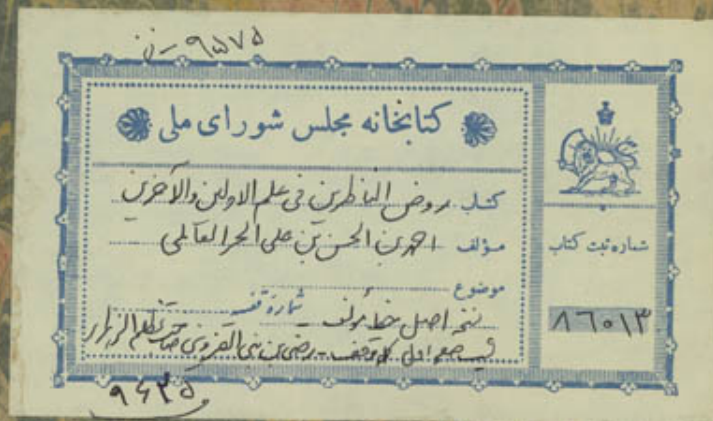 ۹۵۷۵ - ن
کتابخانه مجلس شورای ملی
کتاب روض الناظرین فی علم الاولین والآخرین
مؤلف احمد بن الحسن بن علی الحر العاملی
موضوع
شماره قفسه
نسخه اصل بخط مؤلف
رضی بن نبی القزوینی
۹۶۳۵
شماره ثبت کتاب
۸۶۰۱۳